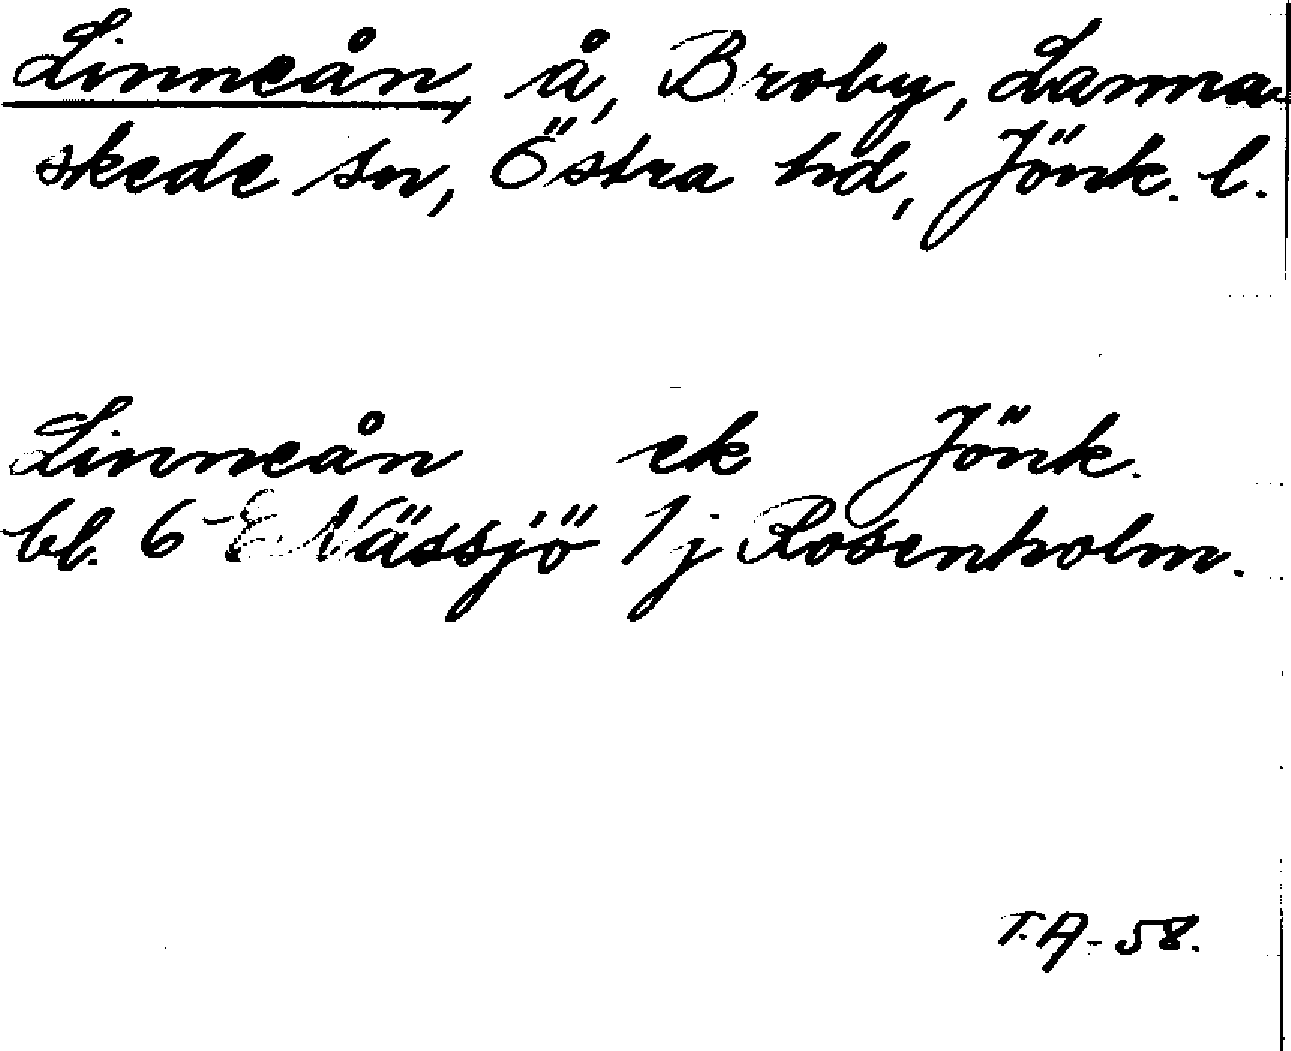 Linneån, å, Broby, Lanna-
skede sn, Östra hd, Jönk. l.
Linneån ek Jönk.
bl. 6 E Nässjö 1 j Rosenholm.
T.A-58.